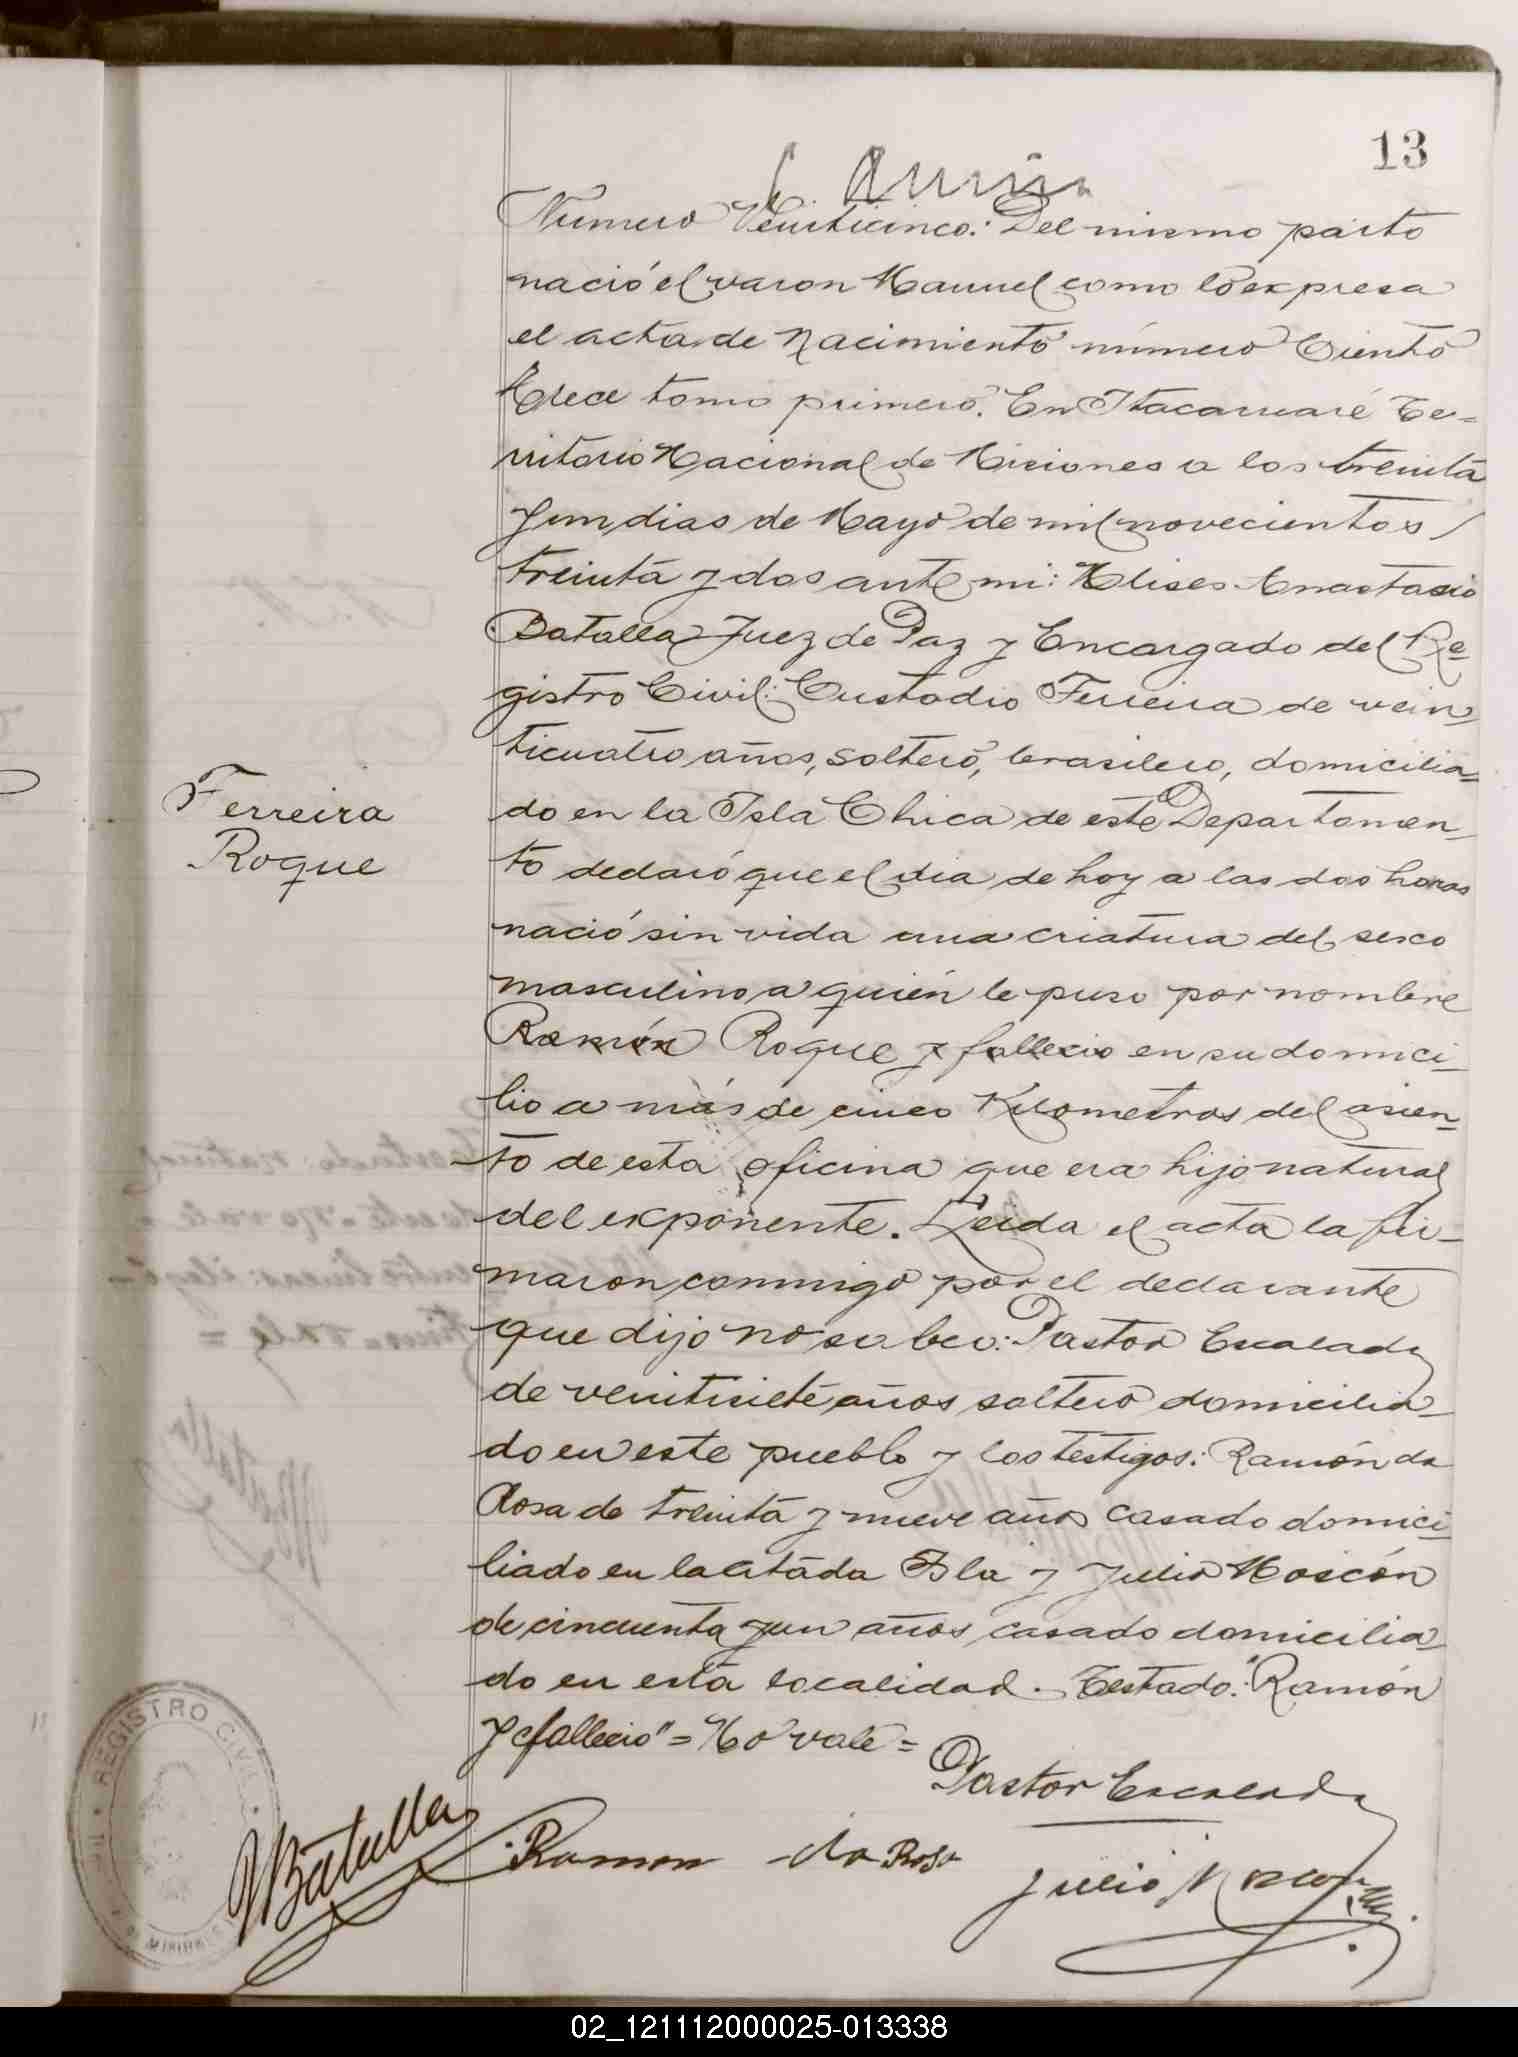 13
Numero Veinticinco: Del mismo parto
nació el varon Manuel como lo expresa
el acta de Nacimiento número Ciento
trece tomo primero. En Itacaruaré Te-
rritorio Nacional de Misiones a los treinta
y un dias de Mayo de mil novecientos
treinta y dos ante mi: Ulises Anastasio
Batalla Juez de Paz y Encargado del Re-
gistro Civil: Custodio Ferreira de vein-
ticuatro años, soltero, brasilero, domicilia-
Ferreira
Roque
do en la Isla Chica de este Departamen-
to declaró que el dia de hoy a las dos horas
nació sin vida una criatura del sexo
masculino a quién le puso por nombre
Ramón Roque y fallecio en su domici-
lio a más de cinco Kilometros del asien-
to de esta oficina que era hijo natural
del exponente. Leida el acta la fir-
maron conmigo por el declarante
que dijo no saber: Pastor Escalada
de veintisiete años soltero domicilia-
do en este pueblo y los testigos: Ramón da
Rosa de treinta y nueve años casado domici-
liado en la citada Isla y Julio Moscón
de cincuenta y un años casado domicilia-
do en esta localidad. Testado: "Ramón
y fallecio" = No vale =
Pastor Escalada
Batalla
Ramon da Rosa
Julio Moscon
REGISTRO CIVIL
02_121112000025-013338